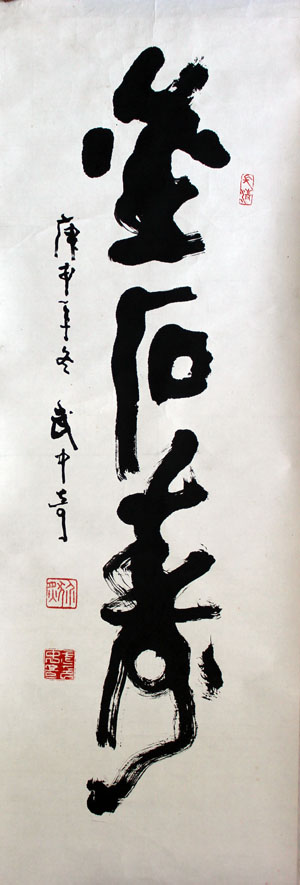 金石寿
庚申年冬 武中奇